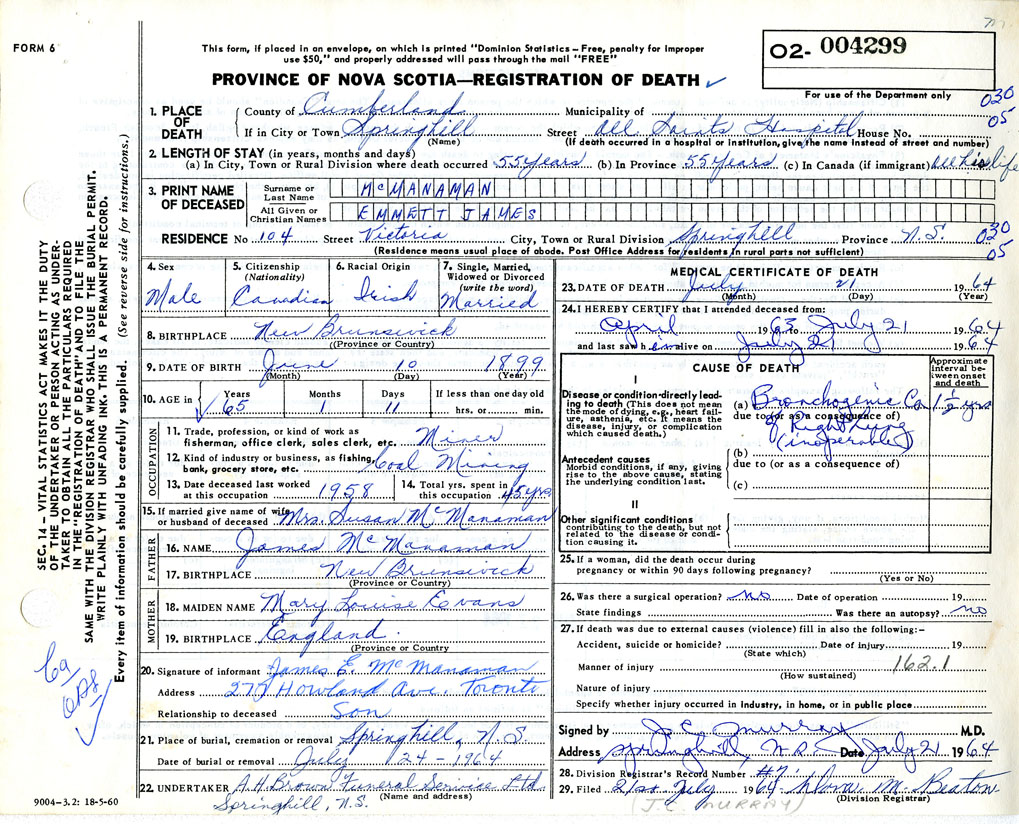 FORM 6
This form, if placed in an envelope, on which is printed "Dominion Statistics – Free, penalty for improper
use $50," and properly addressed will pass through the mail "FREE"
PROVINCE OF NOVA SCOTIA—REGISTRATION OF DEATH ✓
02- 004299
For use of the Department only
030
05
1. PLACE OF DEATH
County of Cumberland Municipality of
If in City or Town Springhill Street All Saints Hospital House No.
(Name) (If death occurred in a hospital or institution, give the name instead of street and number)
2. LENGTH OF STAY (in years, months and days)
(a) In City, Town or Rural Division where death occurred 55 years (b) In Province 55 years (c) In Canada (if immigrant) All his life
3. PRINT NAME OF DECEASED
Surname or Last Name McMANAMAN
All Given or Christian Names EMMETT JAMES
RESIDENCE No 104 Street Victoria City, Town or Rural Division Springhill Province N.S.
(Residence means usual place of abode. Post Office Address for residents in rural parts not sufficient)
030
05
4. Sex
Male
5. Citizenship (Nationality)
Canadian
6. Racial Origin
Irish
7. Single, Married, Widowed or Divorced (write the word)
Married
8. BIRTHPLACE New Brunswick
(Province or Country)
9. DATE OF BIRTH June 10 1899
(Month) (Day) (Year)
10. AGE in Years Months Days If less than one day old
65 1 11 hrs. or min.
OCCUPATION
11. Trade, profession, or kind of work as
fisherman, office clerk, sales clerk, etc. Miner
12. Kind of industry or business, as fishing,
bank, grocery store, etc. Coal Mining
13. Date deceased last worked
at this occupation 1958
14. Total yrs. spent in
this occupation 45 yrs
15. If married give name of wife
or husband of deceased Mrs. Susan McManaman
FATHER
16. NAME James McManaman
17. BIRTHPLACE New Brunswick
(Province or Country)
MOTHER
18. MAIDEN NAME Mary Louise Evans
19. BIRTHPLACE England.
(Province or Country)
20. Signature of informant James E. McManaman
Address Howland Ave. Toronto
Relationship to deceased Son
21. Place of burial, cremation or removal Springhill, N.S.
Date of burial or removal July 24 - 1964
22. UNDERTAKER A.H. Brown Funeral Service Ltd
(Name and address)
Springhill, N.S.
MEDICAL CERTIFICATE OF DEATH
23. DATE OF DEATH July 21 1964
(Month) (Day) (Year)
24. I HEREBY CERTIFY that I attended deceased from:
April 1963 to July 21 1964
and last saw him alive on July 21 1964
CAUSE OF DEATH
Approximate interval between onset and death
I
Disease or condition directly leading to death (This does not mean the mode of dying, e.g., heart failure, asthenia, etc. It means the disease, injury, or complication which caused death.)
(a) Bronchogenic Ca 1½ yrs
due to (or as a consequence of)
of Right Lung
(inoperable)
Antecedent causes
Morbid conditions, if any, giving rise to the above cause, stating the underlying condition last.
(b)
due to (or as a consequence of)
(c)
II
Other significant conditions
contributing to the death, but not related to the disease or condition causing it.
25. If a woman, did the death occur during
pregnancy or within 90 days following pregnancy?
(Yes or No)
26. Was there a surgical operation? no Date of operation 19
State findings Was there an autopsy? no
27. If death was due to external causes (violence) fill in also the following:–
Accident, suicide or homicide? Date of injury 19
(State which)
Manner of injury 162.1
(How sustained)
Nature of injury
Specify whether injury occurred in industry, in home, or in public place
Signed by J.C. Murray M.D.
Address Springhill, N.S. Date July 21 1964
28. Division Registrar's Record Number #7
29. Filed 21st July 1964 M. Beaton
(J.C. MURRAY) (Division Registrar)
SEC. 14 – VITAL STATISTICS ACT MAKES IT THE DUTY
OF THE UNDERTAKER OR PERSON ACTING AS UNDER-
TAKER TO OBTAIN ALL THE PARTICULARS REQUIRED
IN THE "REGISTRATION OF DEATH" AND TO FILE THE
SAME WITH THE DIVISION REGISTRAR WHO SHALL ISSUE THE BURIAL PERMIT.
WRITE PLAINLY WITH UNFADING INK. THIS IS A PERMANENT RECORD.
Every item of information should be carefully supplied. (See reverse side for instructions.)
9004–3.2: 18-5-60